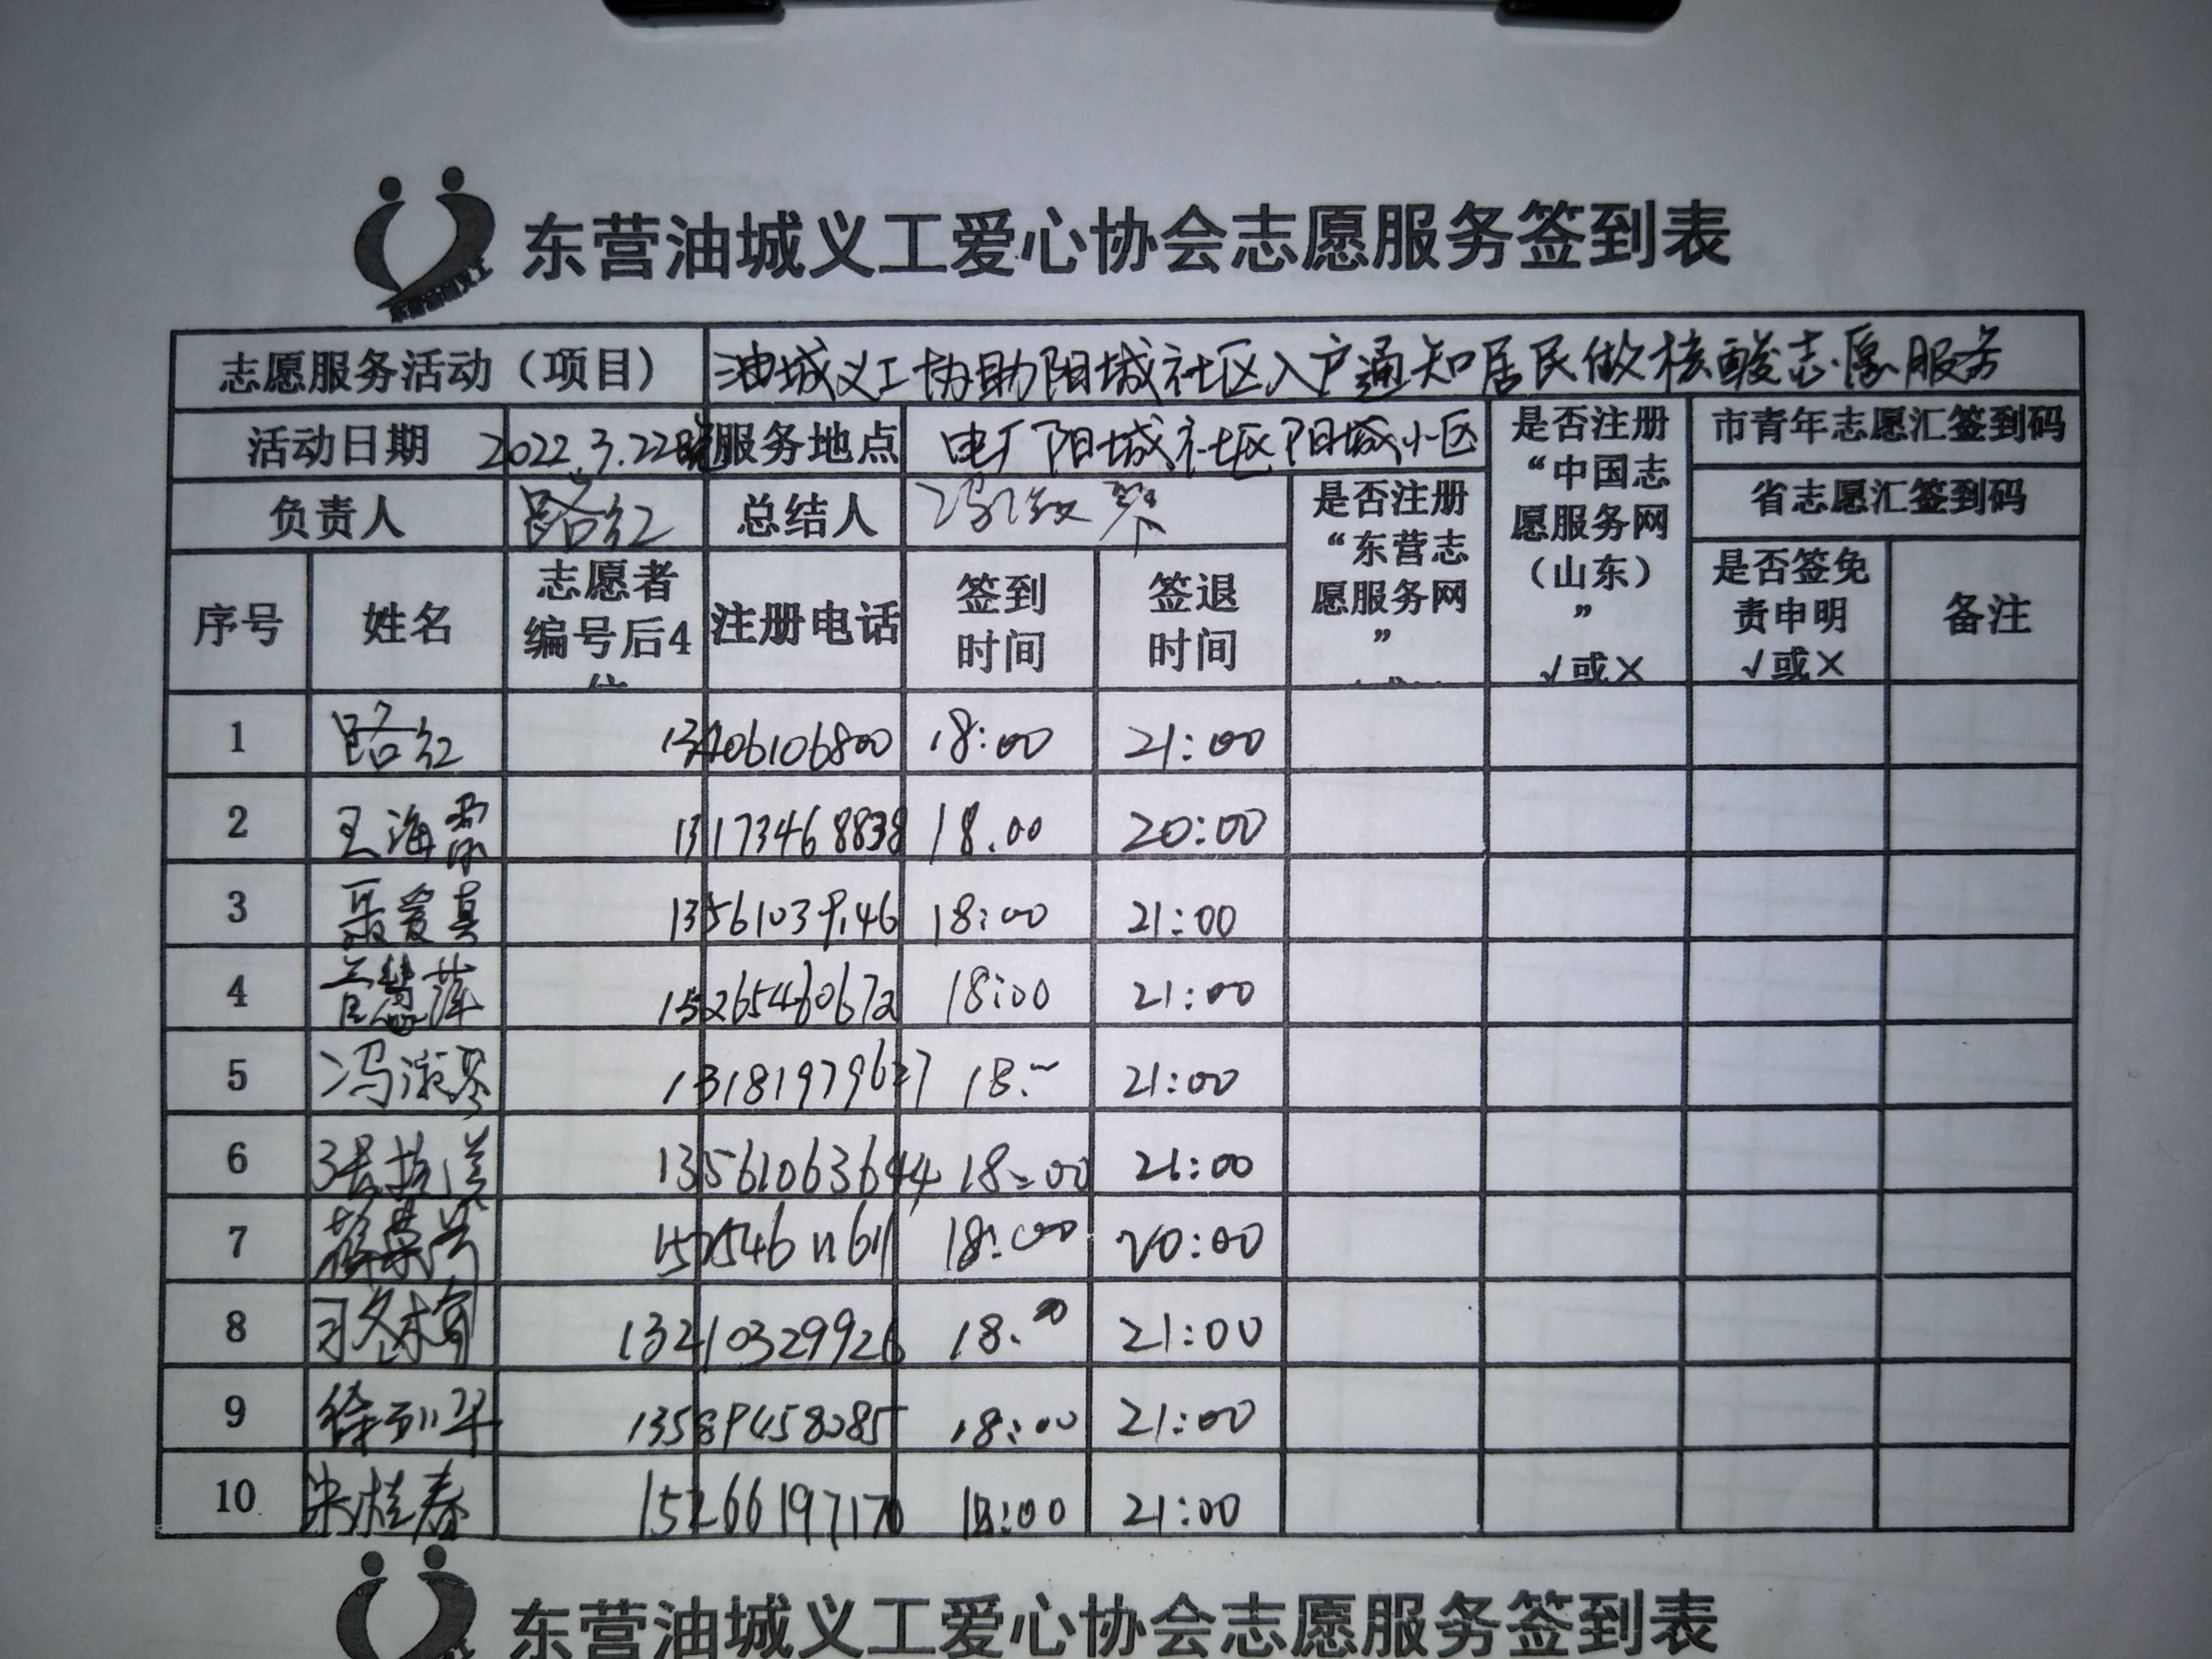 东营油城义工爱心协会志愿服务签到表
志愿服务活动（项目） 油城义工协助阳城社区入户通知居民做核酸志愿服务
活动日期 2022.3.22晚 服务地点 电厂阳城社区阳城小区 是否注册“中国志愿服务网（山东）” √或× 市青年志愿汇签到码
省志愿汇签到码
负责人 路红 总结人 冯淑琴 是否注册“东营志愿服务网”
序号 姓名 志愿者编号后4位 注册电话 签到时间 签退时间 是否签免责申明 √或× 备注
1 路红 13406106800 18:00 21:00
2 王海霞 13173468838 18.00 20:00
3 聂爱真 13561039146 18:00 21:00
4 慧萍 15265460672 18:00 21:00
5 冯淑琴 13181979627 18: 21:00
6 张 13561063644 18:00 21:00
7 薛 18:00 20:00
8 冬梅 13210329926 18.00 21:00
9 徐 13589458085 18:00 21:00
10 朱桂春 15266197170 18:00 21:00
东营油城义工爱心协会志愿服务签到表